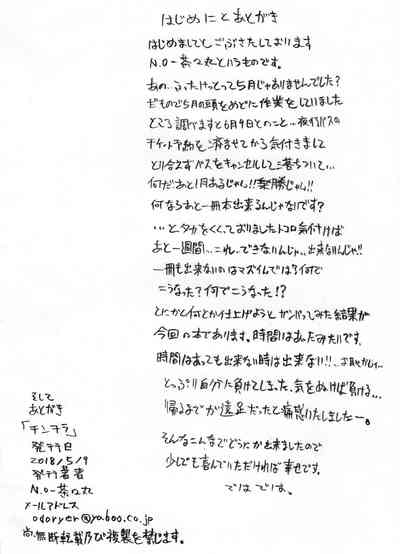 はじめにとあとがき
はじめましてとごぶさたしております
N.O-茶々丸というものです。
あの…ふったけっとって5月じゃありませんでした？
だもので5月の頭をめどに作業をしていました
ところ調べますと6月9日とのこと…夜行バスの
チケット予約を済ませてから気付きまして
とり合えずバスをキャンセルして一落ちついて…
何だあと1月あるじゃん!!楽勝じゃん!!
何ならあと一冊本出来るんじゃないです？
…とタカをくくっておりましたトコロ気付けば
あと一週間…これ、できないんじゃ…出来ないんじゃ!!
一冊も出来ないのはマズイんでは?何で
こうなった?何でこうなった!?
とにかく何とか仕上げようとガンバってみた結果が
今回の本であります。時間はあったみたいです。
時間はあっても出来ない時は出来ない!!
とっぷり自分に負けてしまった、気をぬけば負ける…
帰るまでが遠足だったと痛感いたしましたー。
そんなこんなでどうにか出来ましたので
少しでも喜んでいただければ幸せです。
ではでは。
そして
あとがき
「チンチラ」
発行日
2018/5/9
発行著者
N.O-茶々丸
メールアドレス
odoryer@yahoo.co.jp
尚、無断転載及び複製を禁じます。